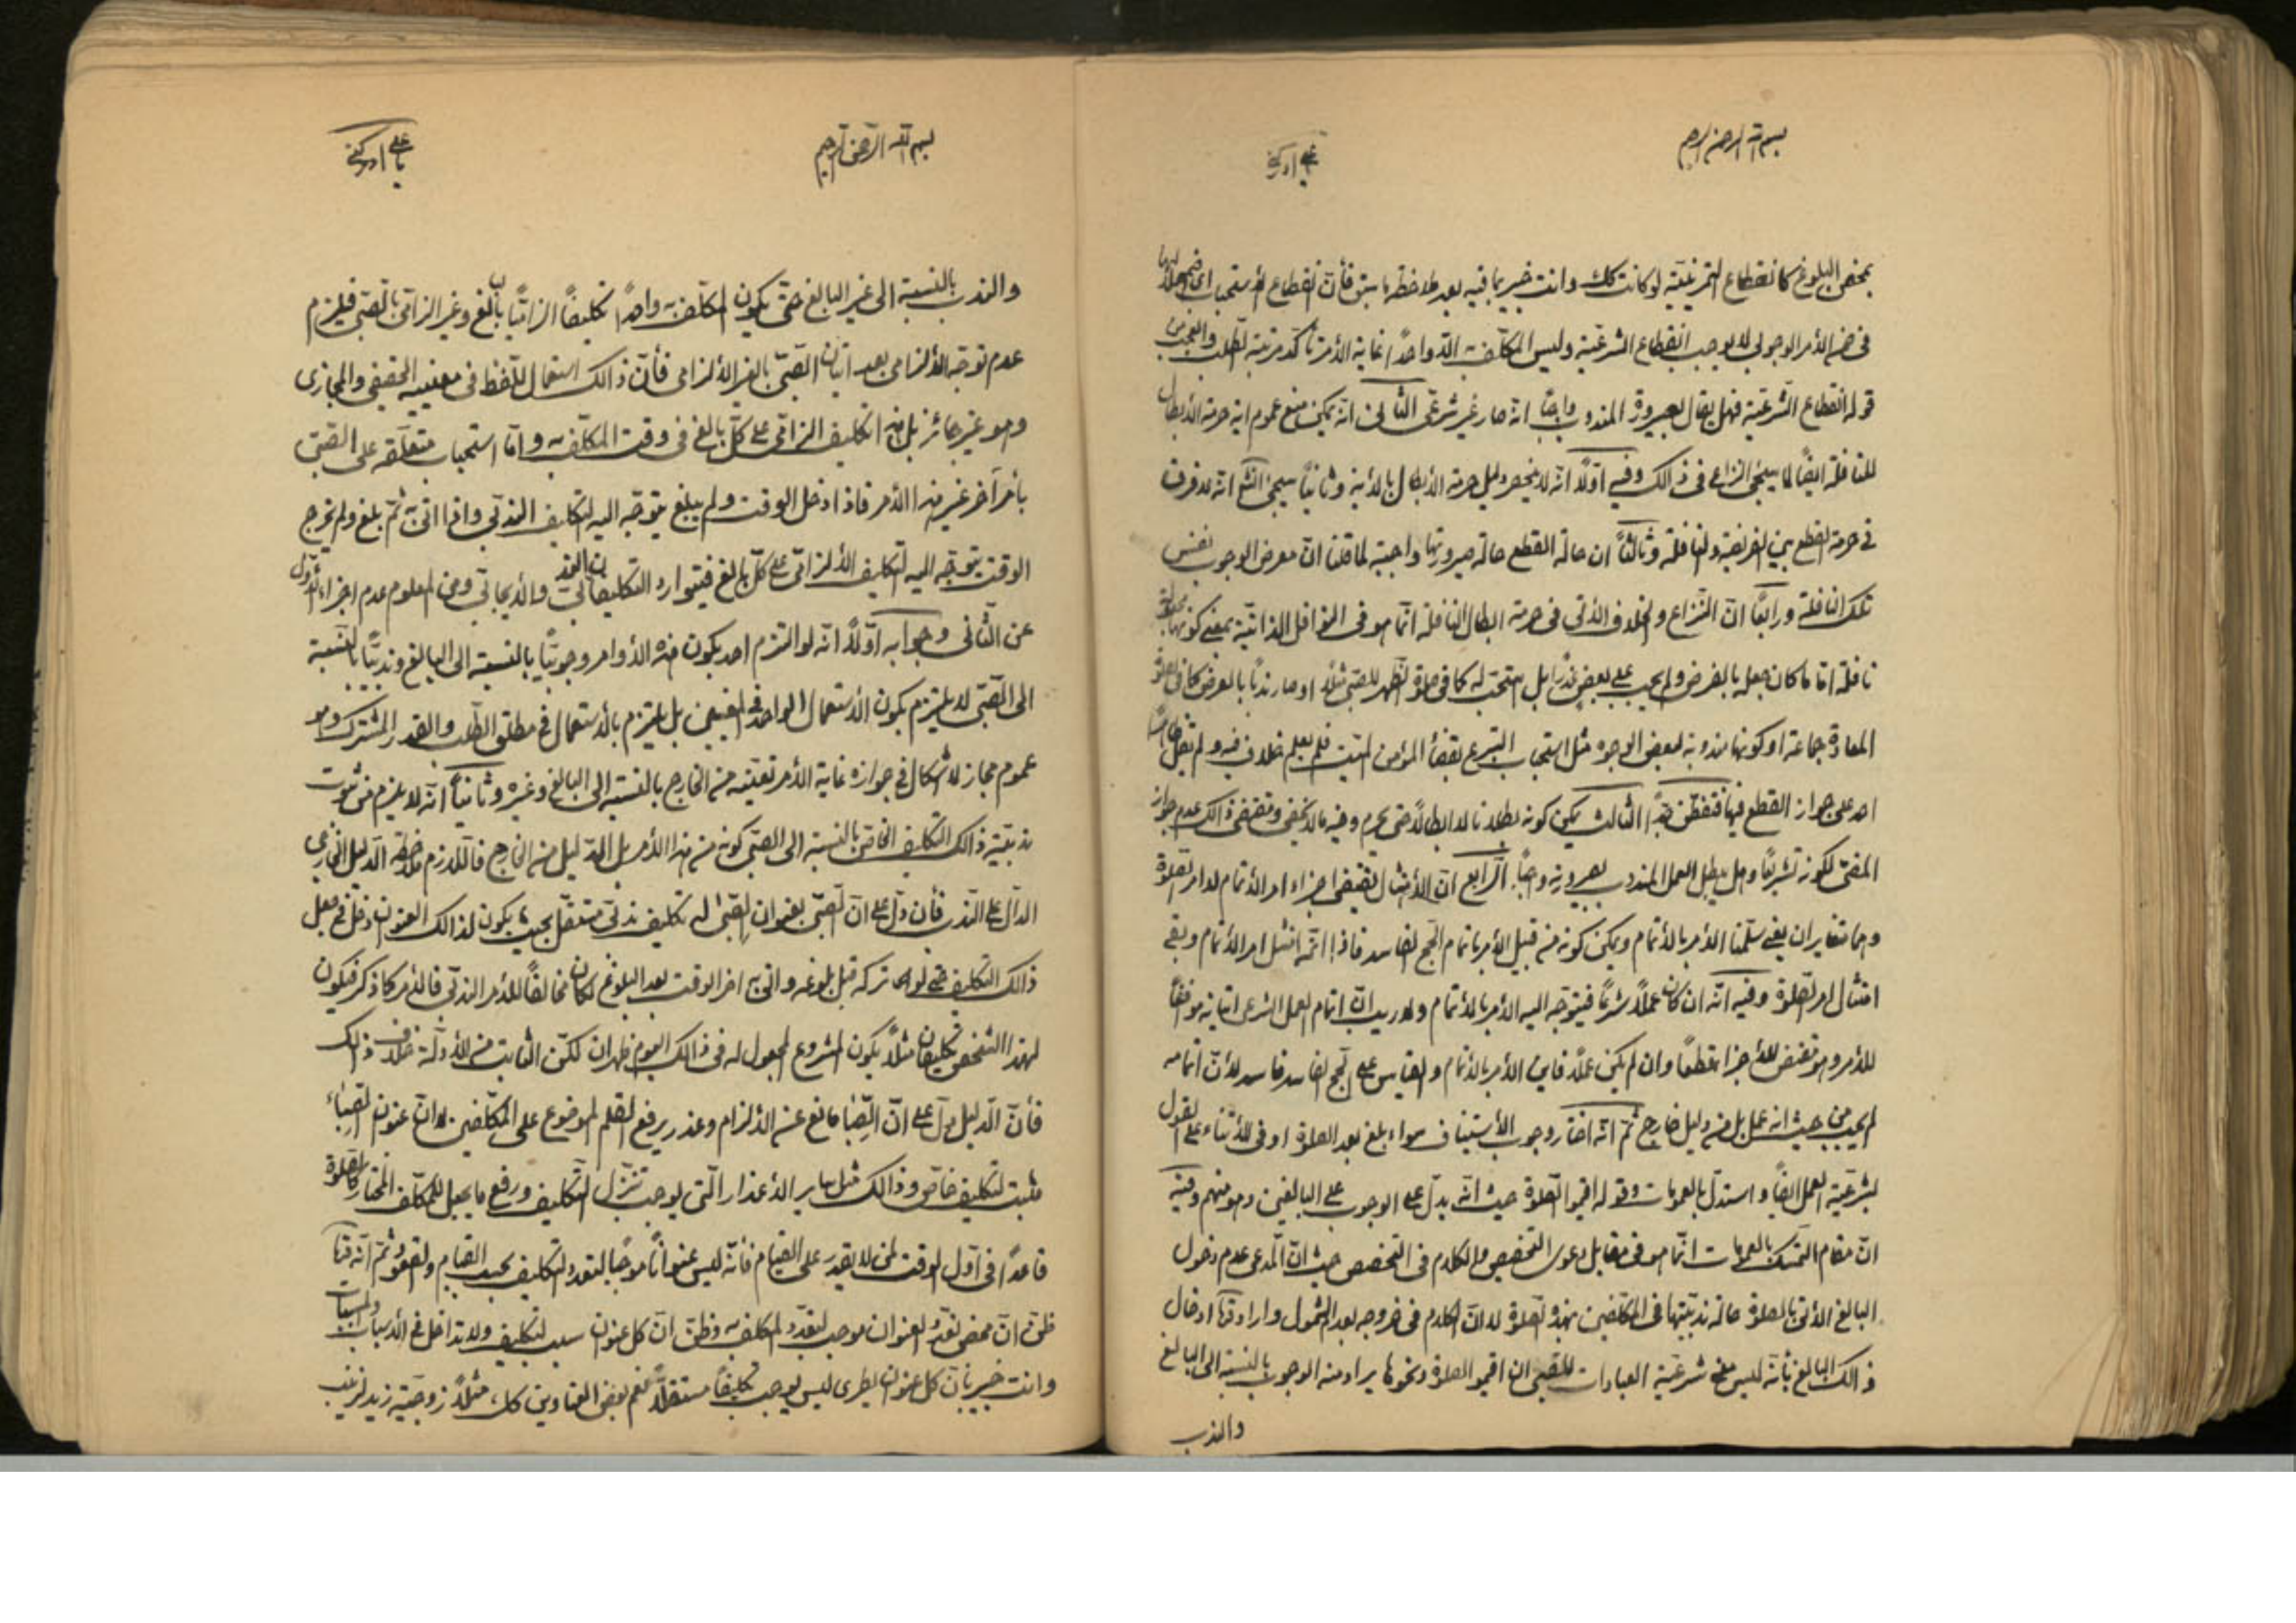 بسم الله الرحمن الرحيم
علي ادركني
بمحض البلوغ كانقطاع التمرينية لو كانت كك وانت خبير بما فيه بعد ملاحظة ما سبق فأن انقطاع الأستحباب
في ضمن الأمر الوجوبي لا يوجب انقطاع الشرعية وليس المكلف به الا واحدا غاية الأمر تأكد مرتبة الطلب والعجب من
قوله انقطاع الشرعية فهل يقال بصيرورة المندوب واجبا انه صار غير شرعي الثاني انه يمكن منع عموم اية حرمة الابطال
للنافلة ايضا لما سيجئ النزاع في ذالك وفيه اولا انه لا ينحصر دليل حرمة الأبطال بالأية وثانيا سيجئ انشا انه لا فرق
في حرمة القطع بين الفريضة والنافلة وثالثا ان حالة القطع حالة صيرورتها واجبة لما قلنا ان معرض الوجوب نفس
تلك النافلة ورابعا ان النزاع والخلاف الأتي في حرمة ابطال النافلة انما هو في النوافل الذاتية بمعنى كونها
نافلة اما ما كان جعله بالفرض ولم يجب على بعض نذرا بل يستحب له كما في صلوة الظهر للصبي مثلا او صار ندبا بالعرض كما في
المعادة جماعة او كونها مندوبة لبعض الوجوه مثل استحباب التبرع بقضاء المؤمن الميت فلم يعلم خلاف فيه ولم ينقل
احد على جواز القطع فيها فتفطن جدا الثالث يمكن كونه بطلانا لا ابطالا حتى يحرم وفيه ما لا يخفى ومقتضى ذالك عدم جواز
المضي لكونه تشريعا وهل يبطل العمل المندوب بصيرورته واجبا الرابع ان الأمتثال يقتضي اجزاء امر الأتمام لا امر الصلوة
وهما متغايران يعني سلمنا الأمر بالأتمام ويمكن كونه من قبيل الأمر باتمام الحج الفاسد فاذا اتمه امتثل امر الأتمام وبقى
امتثال امر الصلوة وفيه انه ان كان عملا شرعيا فيتوجه اليه الأمر بالأتمام ولا ريب ان اتمام العمل الشرعي اتيانه موافقا
للأمر وهو مقتض للأجزاء قطعا وان لم يكن عملا فاين الأمر بالأتمام والقياس على الحج الفاسد فاسد لأن اتمامه
لم يجب من حيث انه عمل بل من دليل خارج ثم انه اختار وجوب الأستيناف سواء بلغ بعد الصلوة او في الأثناء على القول
بشرعية العمل ايضا واستدل بالعمومات وقوله اقيموا الصلوة حيث انه يدل على الوجوب على البالغين وهو منهم وفيه
ان مقام التمسك بالعمومات انما هو في مقابل دعوى التخصيص والكلام في التخصص حيث ان المدعى عدم دخول
البالغ الأتي بالصلوة حالة ندبيتها في المكلفين بهذه الصلوة لا ان الكلام في خروجه بعد الشمول واراد ادخال
ذالك البالغ بأنه ليس معنى شرعية العبادات للصبي ان اقيموا الصلوة ونحوها يراد منه الوجوب بالنسبة الى البالغ
والندب
بسم الله الرحمن الرحيم
يا علي ادركني
والندب بالنسبة الى غير البالغ حتى يكون المكلف به واحدا تكليفا الزاميا بالبالغ وغير الزامي بالصبي فيلزم
عدم توجه الألزامي بعد اتيان الصبي بالغير الألزامي فأن ذالك استعمال للفظ في معنييه الحقيقي والمجازي
وهو غير جائز بل هذا تكليف الزامي على كل بالغ في وقت المكلف به واما استحباب متعلقه على الصبي
بأمر آخر غير هذا الأمر فاذا دخل الوقت ولم يبلغ يتوجه اليه التكليف الندبي واذا اتى به ثم بلغ ولم يخرج
الوقت يتوجه اليه التكليف الألزامي على كل بالغ فيتوارد التكليفان الندبي والأيجابي ومن المعلوم عدم اجزاء الأول
عن الثاني وجوابه اولا انه لو التزم احد بكون هذه الأوامر وجوبيا بالنسبة الى البالغ وندبيا بالنسبة
الى الصبي لا يلتزم بكون الأستعمال الواحد في المعنيين بل يلتزم بالأستعمال في مطلق الطلب والقدر المشترك وهو
عموم مجاز لا اشكال في جوازه غاية الأمر تعينه من الخارج بالنسبة الى البالغ وغيره وثانيا انه لا يلزم من ثبوت
ندبية ذالك التكليف الخاص بالنسبة الى الصبي كونه من هذا الأمر بل الدليل من الخارج فاللازم ملاحظة الدليل الخارجي
الدال على الندب فأن دل على ان الصبي بعنوان الصبى له تكليف ندبي مستقل بحيث يكون لذالك العنوان دخل في جعل
ذالك التكليف حتى لو تركه قبل بلوغه واتى به اخر الوقت بعد البلوغ لكان مخالفا للأمر الندبي فالأمر كما ذكر فيكون
لهذا الشخص تكليفان مثلا يكون المشروع المجعول له في ذالك اليوم ظهران لكن الثابت من الأدلة خلاف ذالك
فأن الدليل دل على ان الصبا مانع عن الألزام وعذر يرفع القلم الموضوع على المكلفين لا ان عنوان الصباء
مثبت لتكليف خاص وذالك مثل ساير الأعذار التي يوجب تنزل التكليف ورفع ما يجعل للمكلف المختار كالصلوة
قاعدا في اول الوقت لمن لا يقدر على القيام فأنه ليس عنوانا موجبا لتعدد التكليف بحسب القيام والقعود ثم انه
ظن ان محض تعدد العنوان موجب لتعدد المكلف به وظن ان كل عنوان سبب لتكليف ولا تداخل في الأسباب والمسببات
وانت خبير بأن كل عنوان يطرى ليس يوجب تكليفا مستقلا نعم بعض العناوين كك مثلا زوجية زيد لزينب